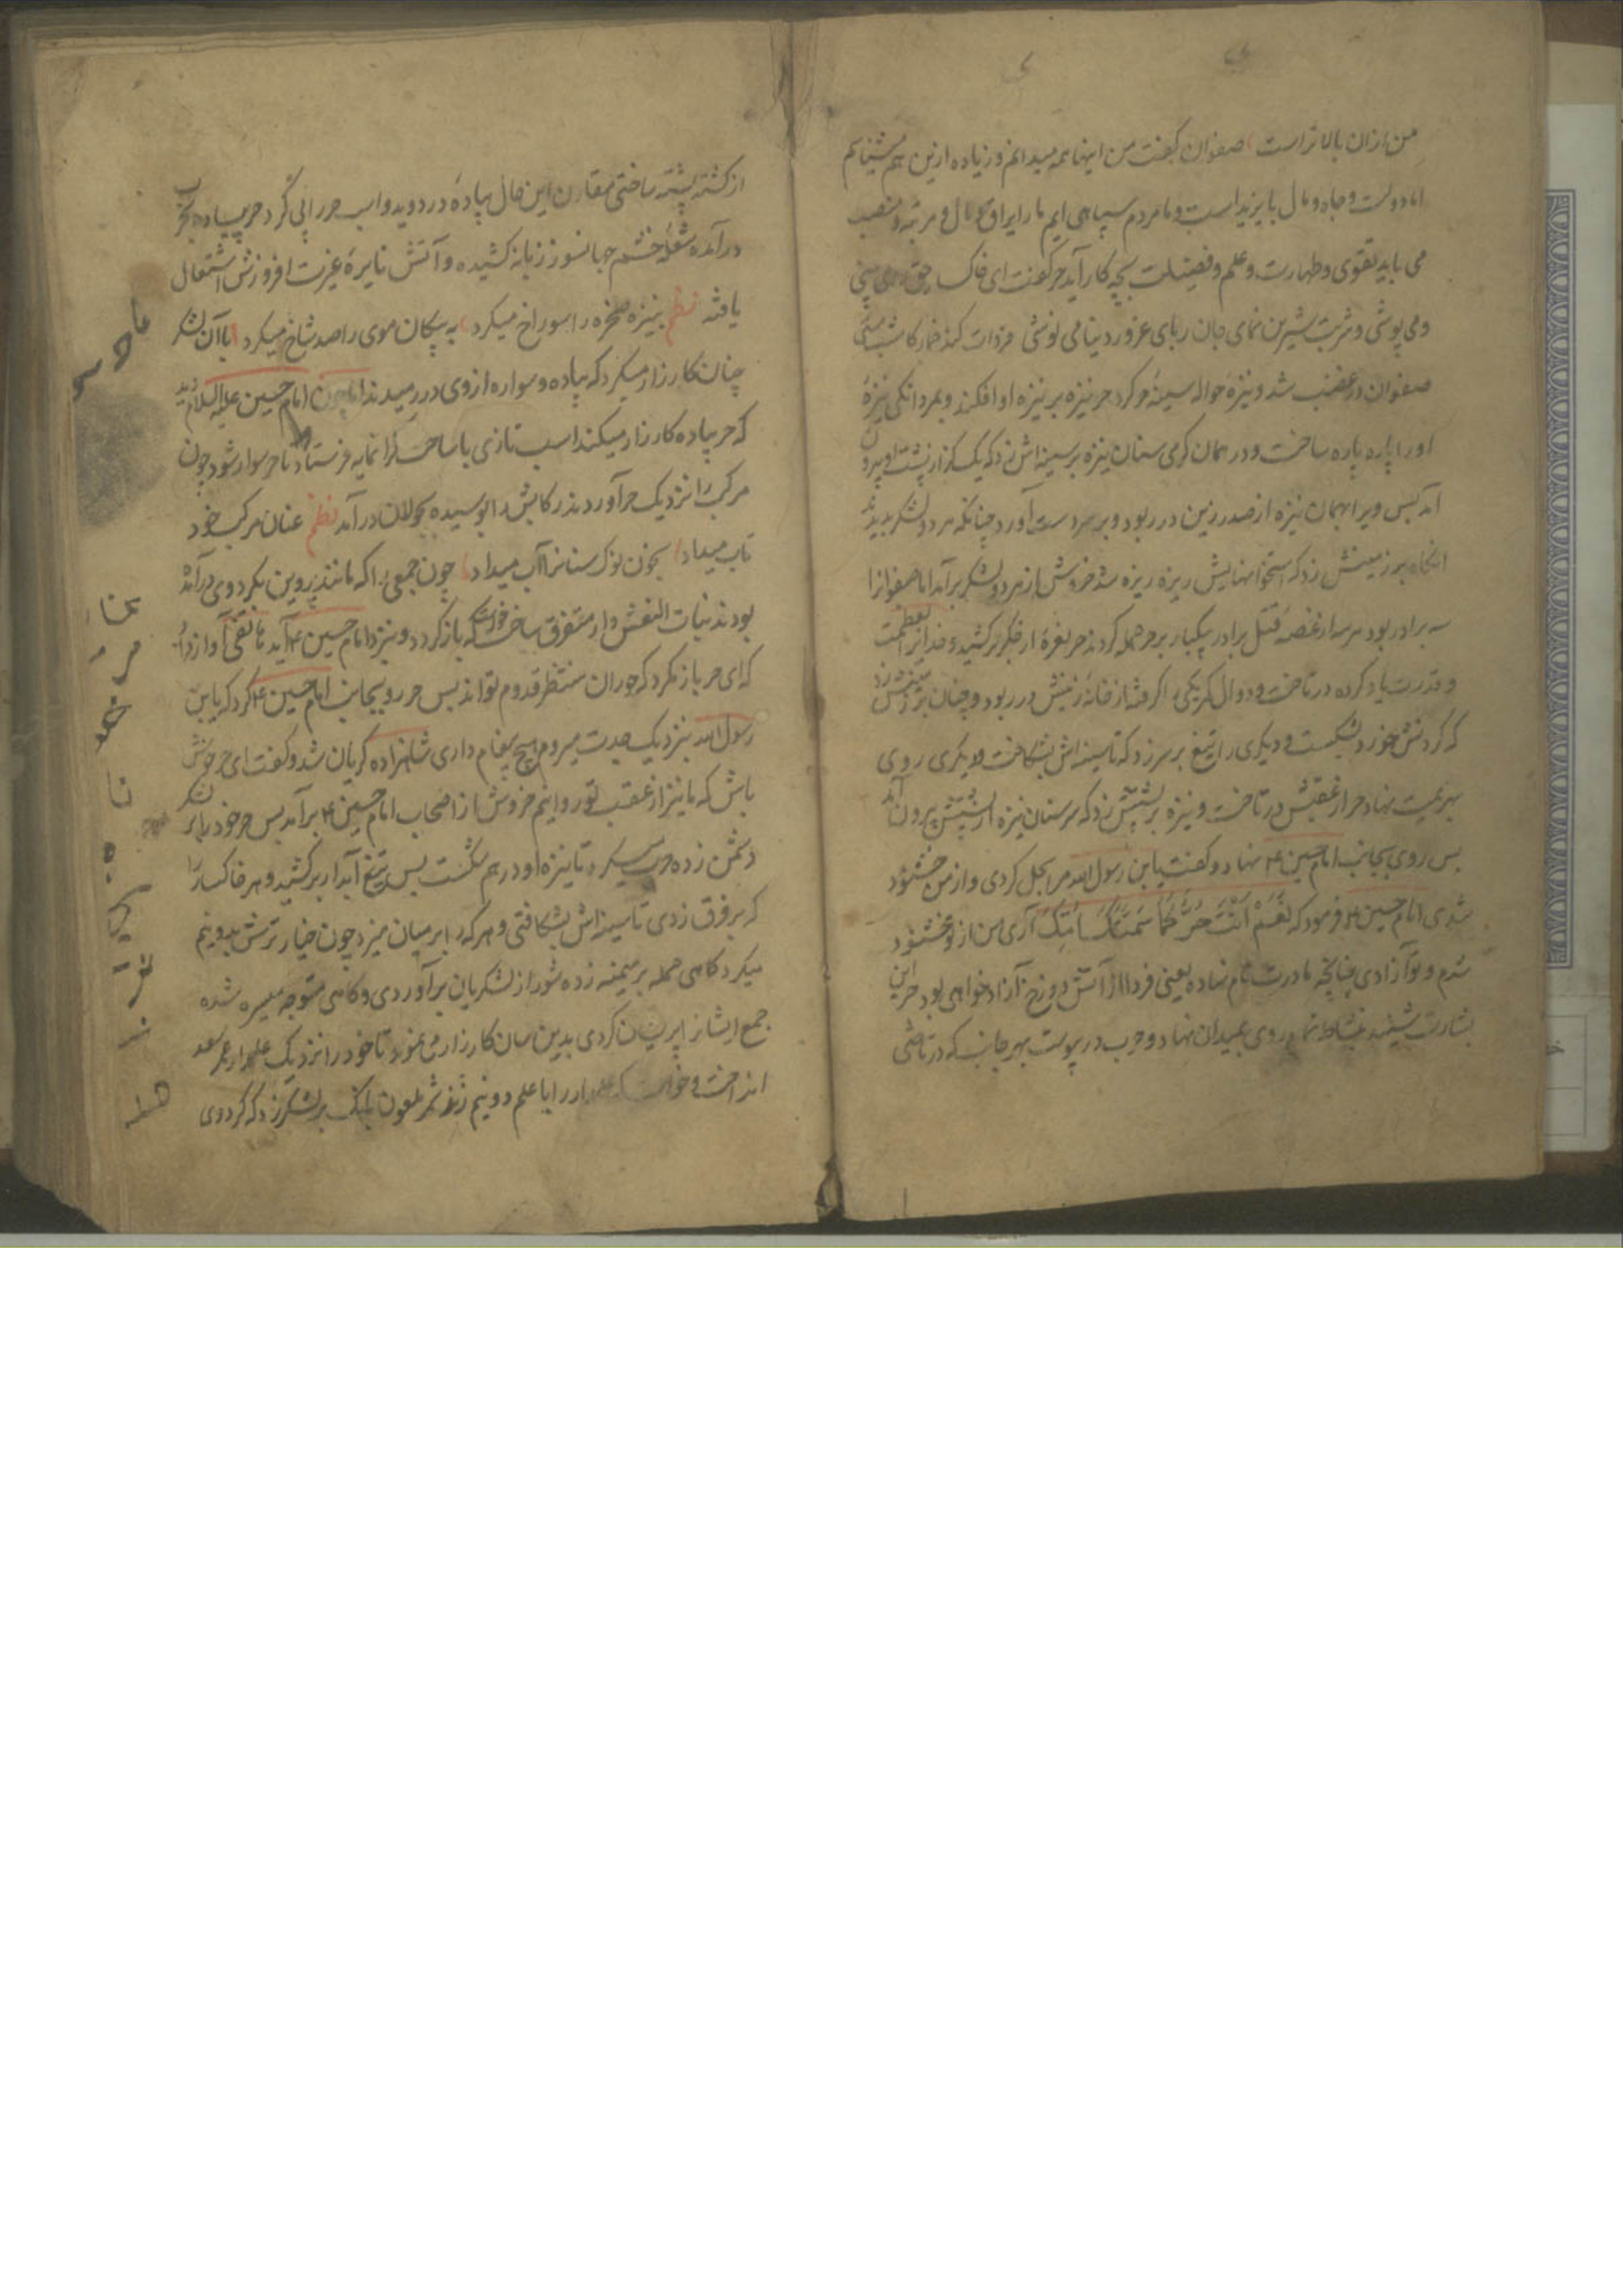 من از آن بالاتر است صفوان گفت من اینها همه میدانم و زیاده ازین هم میشناسم
اما دولت و جاه و مال با یزید است و ما مردم سپاهی ایم ما را یراق و مال و مرتبه و منصب
می باید تقوی و طهارت و علم و فضیلت بچه کار آید حر گفت ای خاکسار حق می بینی
و می پوشی و شربت شیرین نمای جان ربای غرور دنیا می نوشی
صفوان در غضب شد و نیزه حواله سینه حر کرد حر نیزه بر نیزه او افکند و بمردانگی نیزهٔ
او را پاره پاره ساخت و در همان گرمی سنان نیزه بر سینه اش زد که یک گز از پشت او بیرون
آمد پس ویرا بهمان نیزه از صدر زین در ربود و بر سر دست آورد چنانکه هر دو لشکر بدیدند
آنگاه بر زمینش زد که استخوانهایش ریزه ریزه شد خروش از هر دو لشکر برآمد اما صفوانرا
سه برادر بود هر سه از غصه قتل برادر بیکبار بر حر حمله کردند حر نعرهٔ از جگر برکشید و خدایرا بعظمت
و قدرت یاد کرده در تاخت و دوال کمر یکی را گرفته از خانهٔ زینش در ربود و چنان بر زمینش زد
که گردنش خورد بشکست و دیگری را تیغ بر سر زد که تا سینه اش بشکافت و دیگری روی
بهزیمت نهاد حر از عقبش در تاخت و نیزه بر پشتش زد که سر سنان نیزه از سینه‌اش بیرون آمد
پس روی بجانب امام حسین ع نهاد و گفت یا بن رسول الله مرا بحل کردی و از من خشنود
شدی امام حسین ع فرمود که نَعَمْ اَنْتَ حُرٌّ کَمَا سَمَّتْکَ اُمُّکَ آری من از تو خشنود
شدم و تو آزادی چنانچه مادرت نام نهاده یعنی فردا از آتش دوزخ آزاد خواهی بود حر این
بشارت شنید بنشاط تمام روی بمیدان نهاد و حرب در پیوست بهر جانب که در تاختی
از کشته پشته ساختی مقارن این حال پیادهٔ در دوید و اسب حر را پی کرد حر پیاده بحرب
درآمده شعلهٔ خشم جهانسوز زبانه کشیده و آتش نایرهٔ غیرت افروزش اشتعال
یافته نظم بنیزه صخره را سوراخ میکرد به پیکان موی را صد شاخ میکرد با آن لشکر
چنان کارزار میکرد که پیاده و سواره از وی در رمیدند اما چون امام حسین علیه السلام دید
که حر پیاده کارزار میکند اسب تازی با ساخت گرانمایه فرستاد تا حر سوار شود چون
مرکب را نزدیک حر آوردند رکابش را بوسیده بجولان درآمد نظم عنان مرکب خود
تاب میداد بخون نوک سنانرا آب میداد چون جمعی را که مانند پروین بگرد وی درآمده
بودند بنات النعش وار متفرق ساخت خواست که باز گردد و بنزد امام حسین ع آید هاتفی آواز داد
که ای حر باز مگرد که حوران منتظر قدوم تواند پس حر رو بجانب امام حسین ع کرد که یا بن
رسول الله بنزدیک جدت میروم هیچ پیغام داری شاهزاده گریان شد و گفت ای حر خوش
باش که ما نیز از عقب تو روانیم خروش از اصحاب امام حسین ع برآمد پس حر خود را بر لشکر
دشمن زده حرب میکرد تا نیزه او در هم شکست پس تیغ آبدار برکشید و هر خاکسار را
که بر فرق زدی تا سینه اش بشکافتی و هر که را بر میان میزد چون خیار ترش بدو نیم
میکرد گاهی حمله بر میمنه زده شور از لشکریان برآوردی و گاهی متوجه میسره شده
جمع ایشانرا پریشان کردی بدین سان کارزار می نمود تا خود را نزدیک علمدار عمر سعد
انداخت و خواست که علمدار را با علم دو نیم زند شمر ملعون بانگ بر لشکر زد که گرد وی